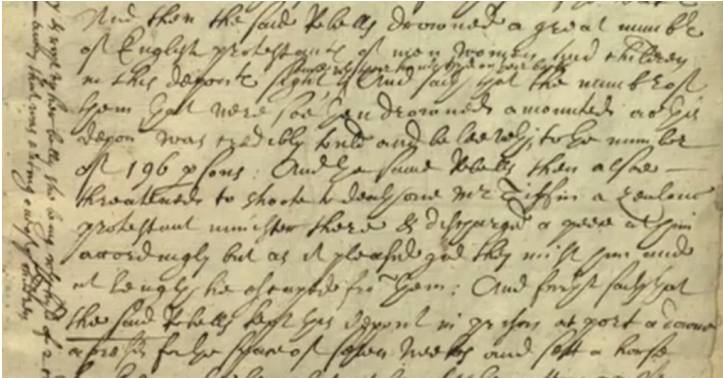 And then the said Rebells drowned a great number
of English protestants of men women and children
in this deponts sight And saith that the number of
them that were soe then drowned amounted as this
depont was credibly tould and beleeveth to the number
of 196 psons: And the same Rebells then alsoe
threatened to shoote to death one Mr Tiffin a zealous
protestant minister there & discharged a peece at him
accordingly but as it pleased god they mist him and
at length he escaped from them: And further saith that
the said Rebells kept this depont in prison at port a downe
aforesaid for the space of seven weeks and sett a horse